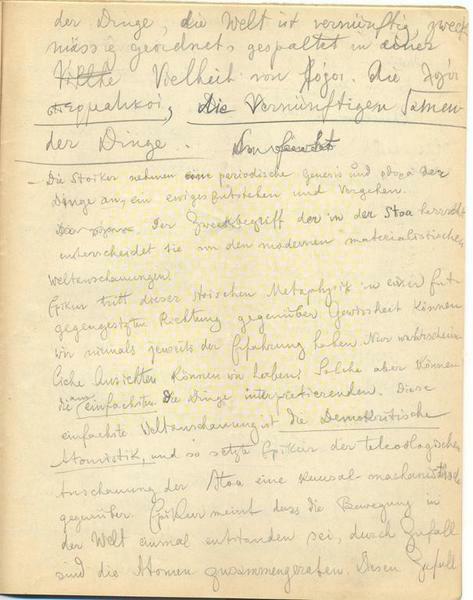 der Dinge, die Welt ist vernünftig zweck
mässig geordnet gespaltet in einer
Vielheit von Λόγοι. die λόγοι
σπερματικοί, die Vernünftigen Samen
der Dinge.
– Die Stoiker nehmen eine periodische Genesis und φθορά der
Dinge an, ein ewiges Entstehen und Vergehen.
Der Zweckbegriff der in der Stoa herrscht
unterscheidet sie von den modernen materialistischen
Weltanschauungen.
Epikur tritt dieser stoischen Metaphysik in einer
gegengesetzten Richtung gegenüber Gewissheit können
wir niemals jenseits der Erfahrung haben. Nur wahrschein
liche Ansichten können wir haben. Solche aber können
die einfachsten die Dinge interpretierenden. Diese
einfachste Weltanschauung ist die Demokritische
Atomistik, und so setzt Epikur der teleologischen
Anschauung der Stoa eine kausal-mechanistische
gegenüber. Epikur meint dass die Bewegung in
der Welt einmal entstanden sei, durch Zufall
sind die Atomen zusammengeraten. Diesen Zufall